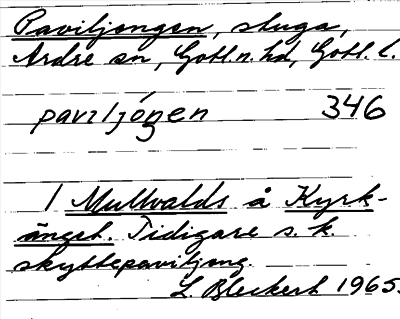 Paviljongen, stuga,
Ardre sn, Gotl.n. hd, Gotl. l.
pavɩljóŋen 346
I Mullvalds å Kyrk-
änget. Tidigare s.k.
skyttepaviljong.
L. Bleckert 1965.